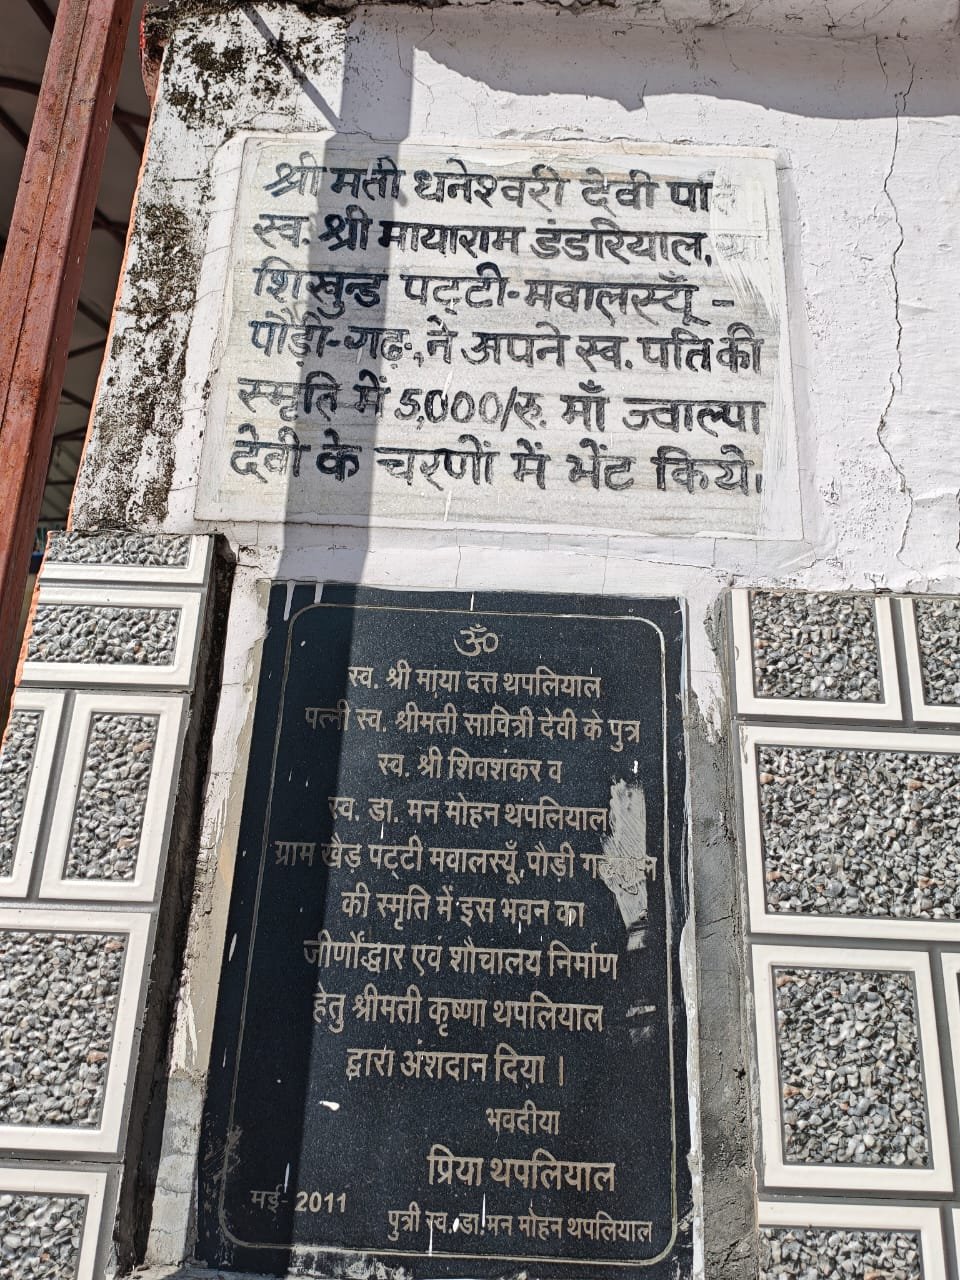 श्रीमती धनेश्वरी देवी
स्व. श्री मायाराम डंडरियाल,
शिखुन्ड पट्टी-मवालस्यूँ -
पौड़ी-गढ़., ने अपने स्व. पति की
स्मृति में 5,000/रु. माँ ज्वाल्पा
देवी के चरणों में भेंट किये।
ॐ
स्व. श्री माया दत्त थपलियाल
पत्नी स्व. श्रीमती सावित्री देवी के पुत्र
स्व. श्री शिवशंकर व
स्व. डा. मन मोहन थपलियाल
ग्राम खैड़ पट्टी मवालस्यूँ, पौडी
की स्मृति में इस भवन का
जीर्णोद्धार एवं शौचालय निर्माण
हेतु श्रीमती कृष्णा थपलियाल
द्वारा अंशदान दिया ।
भवदीया
प्रिया थपलियाल
मई- 2011
पुत्री स्व. डा. मन मोहन थपलियाल